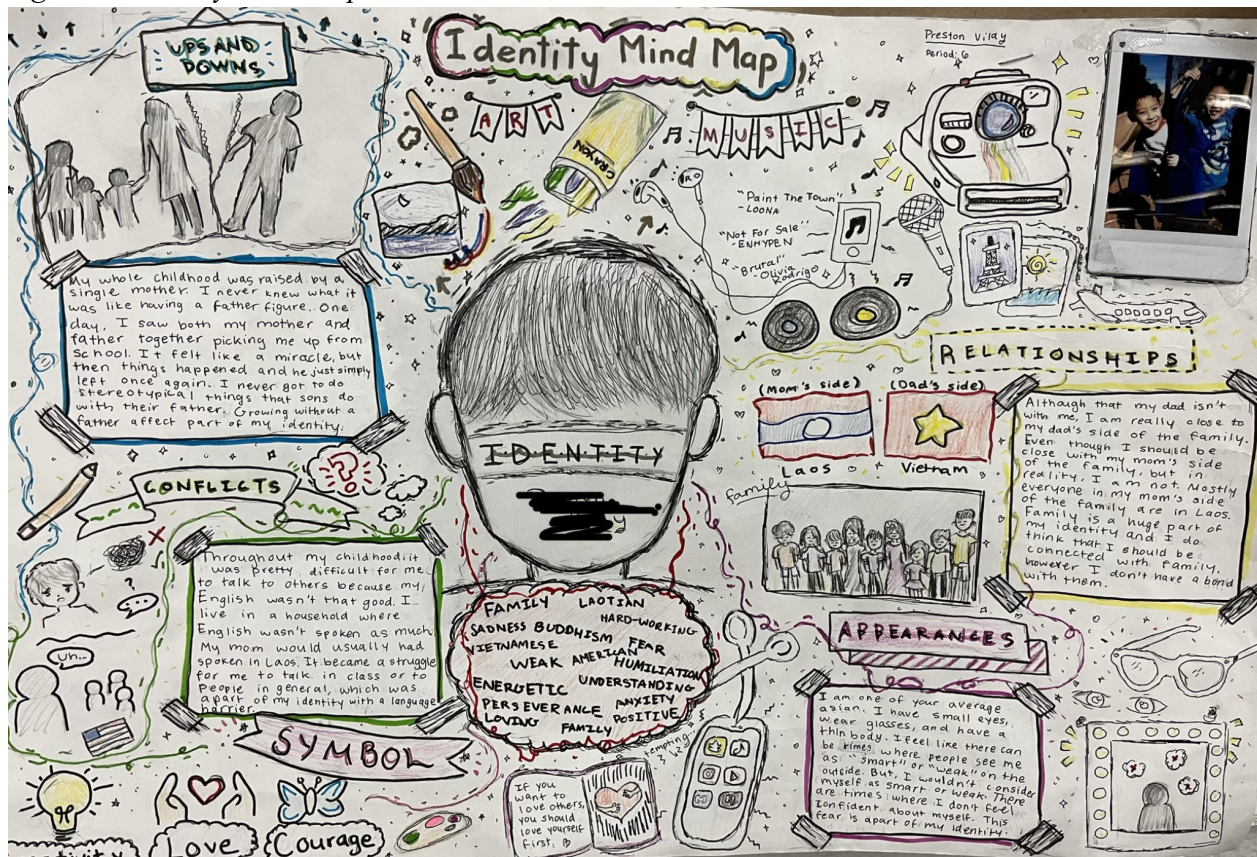 Identity Mind Map
Preston Vilay
Period: 6
UPS AND
DOWNS
ART
MUSIC
CRAYON
"Paint The Town"
-LOONA
"Not For Sale"
-ENHYPEN
"Brutal"
-Olivia
Rodrigo
My whole childhood was raised by a
single mother. I never knew what it
was like having a father figure. One
day, I saw both my mother and
father together picking me up from
school. It felt like a miracle, but
then things happened and he just simply
left once again. I never got to do
stereotypical things that sons do
with their father. Growing without a
father affect part of my identity.
IDENTITY
RELATIONSHIPS
(Mom's side) (Dad's side)
Laos Vietnam
family
Although that my dad isn't
with me, I am really close to
my dad's side of the family.
Even though I should be
close with my mom's side
of the family, but in
reality, I am not. Mostly
everyone in my mom's side
of the family are in Laos.
Family is a huge part of
my identity and I do
think that I should be
connected with family,
however I don't have a bond
with them.
CONFLICTS
?!
?
uh...
Throughout my childhood it
was pretty difficult for me
to talk to others because my
English wasn't that good. I
live in a household where
English wasn't spoken as much.
My mom would usually had
spoken in Laos. It became a struggle
for me to talk in class or to
people in general, which was
apart of my identity with a language
barrier.
FAMILY LAOTIAN
HARD-WORKING
SADNESS BUDDHISM FEAR
VIETNAMESE AMERICAN
WEAK HUMILIATION
UNDERSTANDING
ENERGETIC
PERSEVERANCE ANXIETY
LOVING FAMILY POSITIVE
APPEARANCES
I am one of your average
asian. I have small eyes,
wear glasses, and have a
thin body. I feel like there can
be times where people see me
as "smart" or "weak" on the
outside. But, I wouldn't consider
myself as smart or weak. There
are times where I don't feel
confident about myself. This
fear is apart of my identity.
SYMBOL
Love
Courage
If you
want to
love others,
you should
love yourself
first.
tempting...